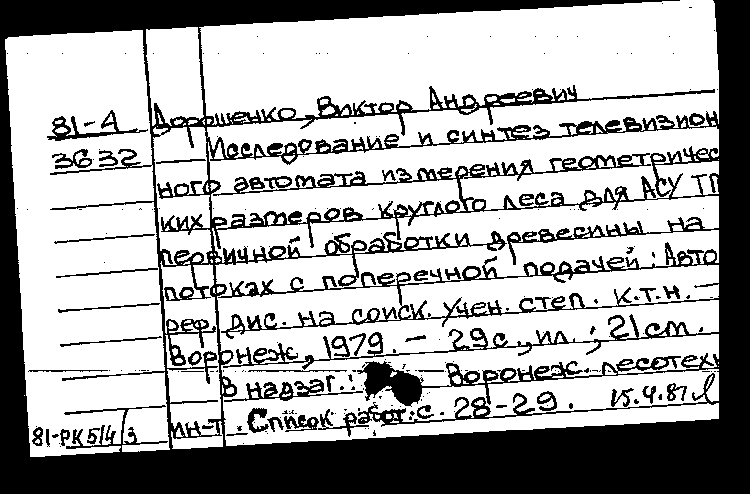 81-А Дорошенко, Виктор Андреевич
3632 Исследование и синтез телевизион
ного автомата измерения геометричес
ких размеров круглого леса для АСУ ТП
первичной обработки древесины на
потоках с поперечной подачей: Авто
реф. дис. на соиск. учен. степ. к.т.н. —
Воронеж, 1979. — 29с., ил.; 21см.
В надзаг.: Воронеж. лесотехн
ин-т. Список работ: с. 28-29. 15.4.81
81-РК5/4/3